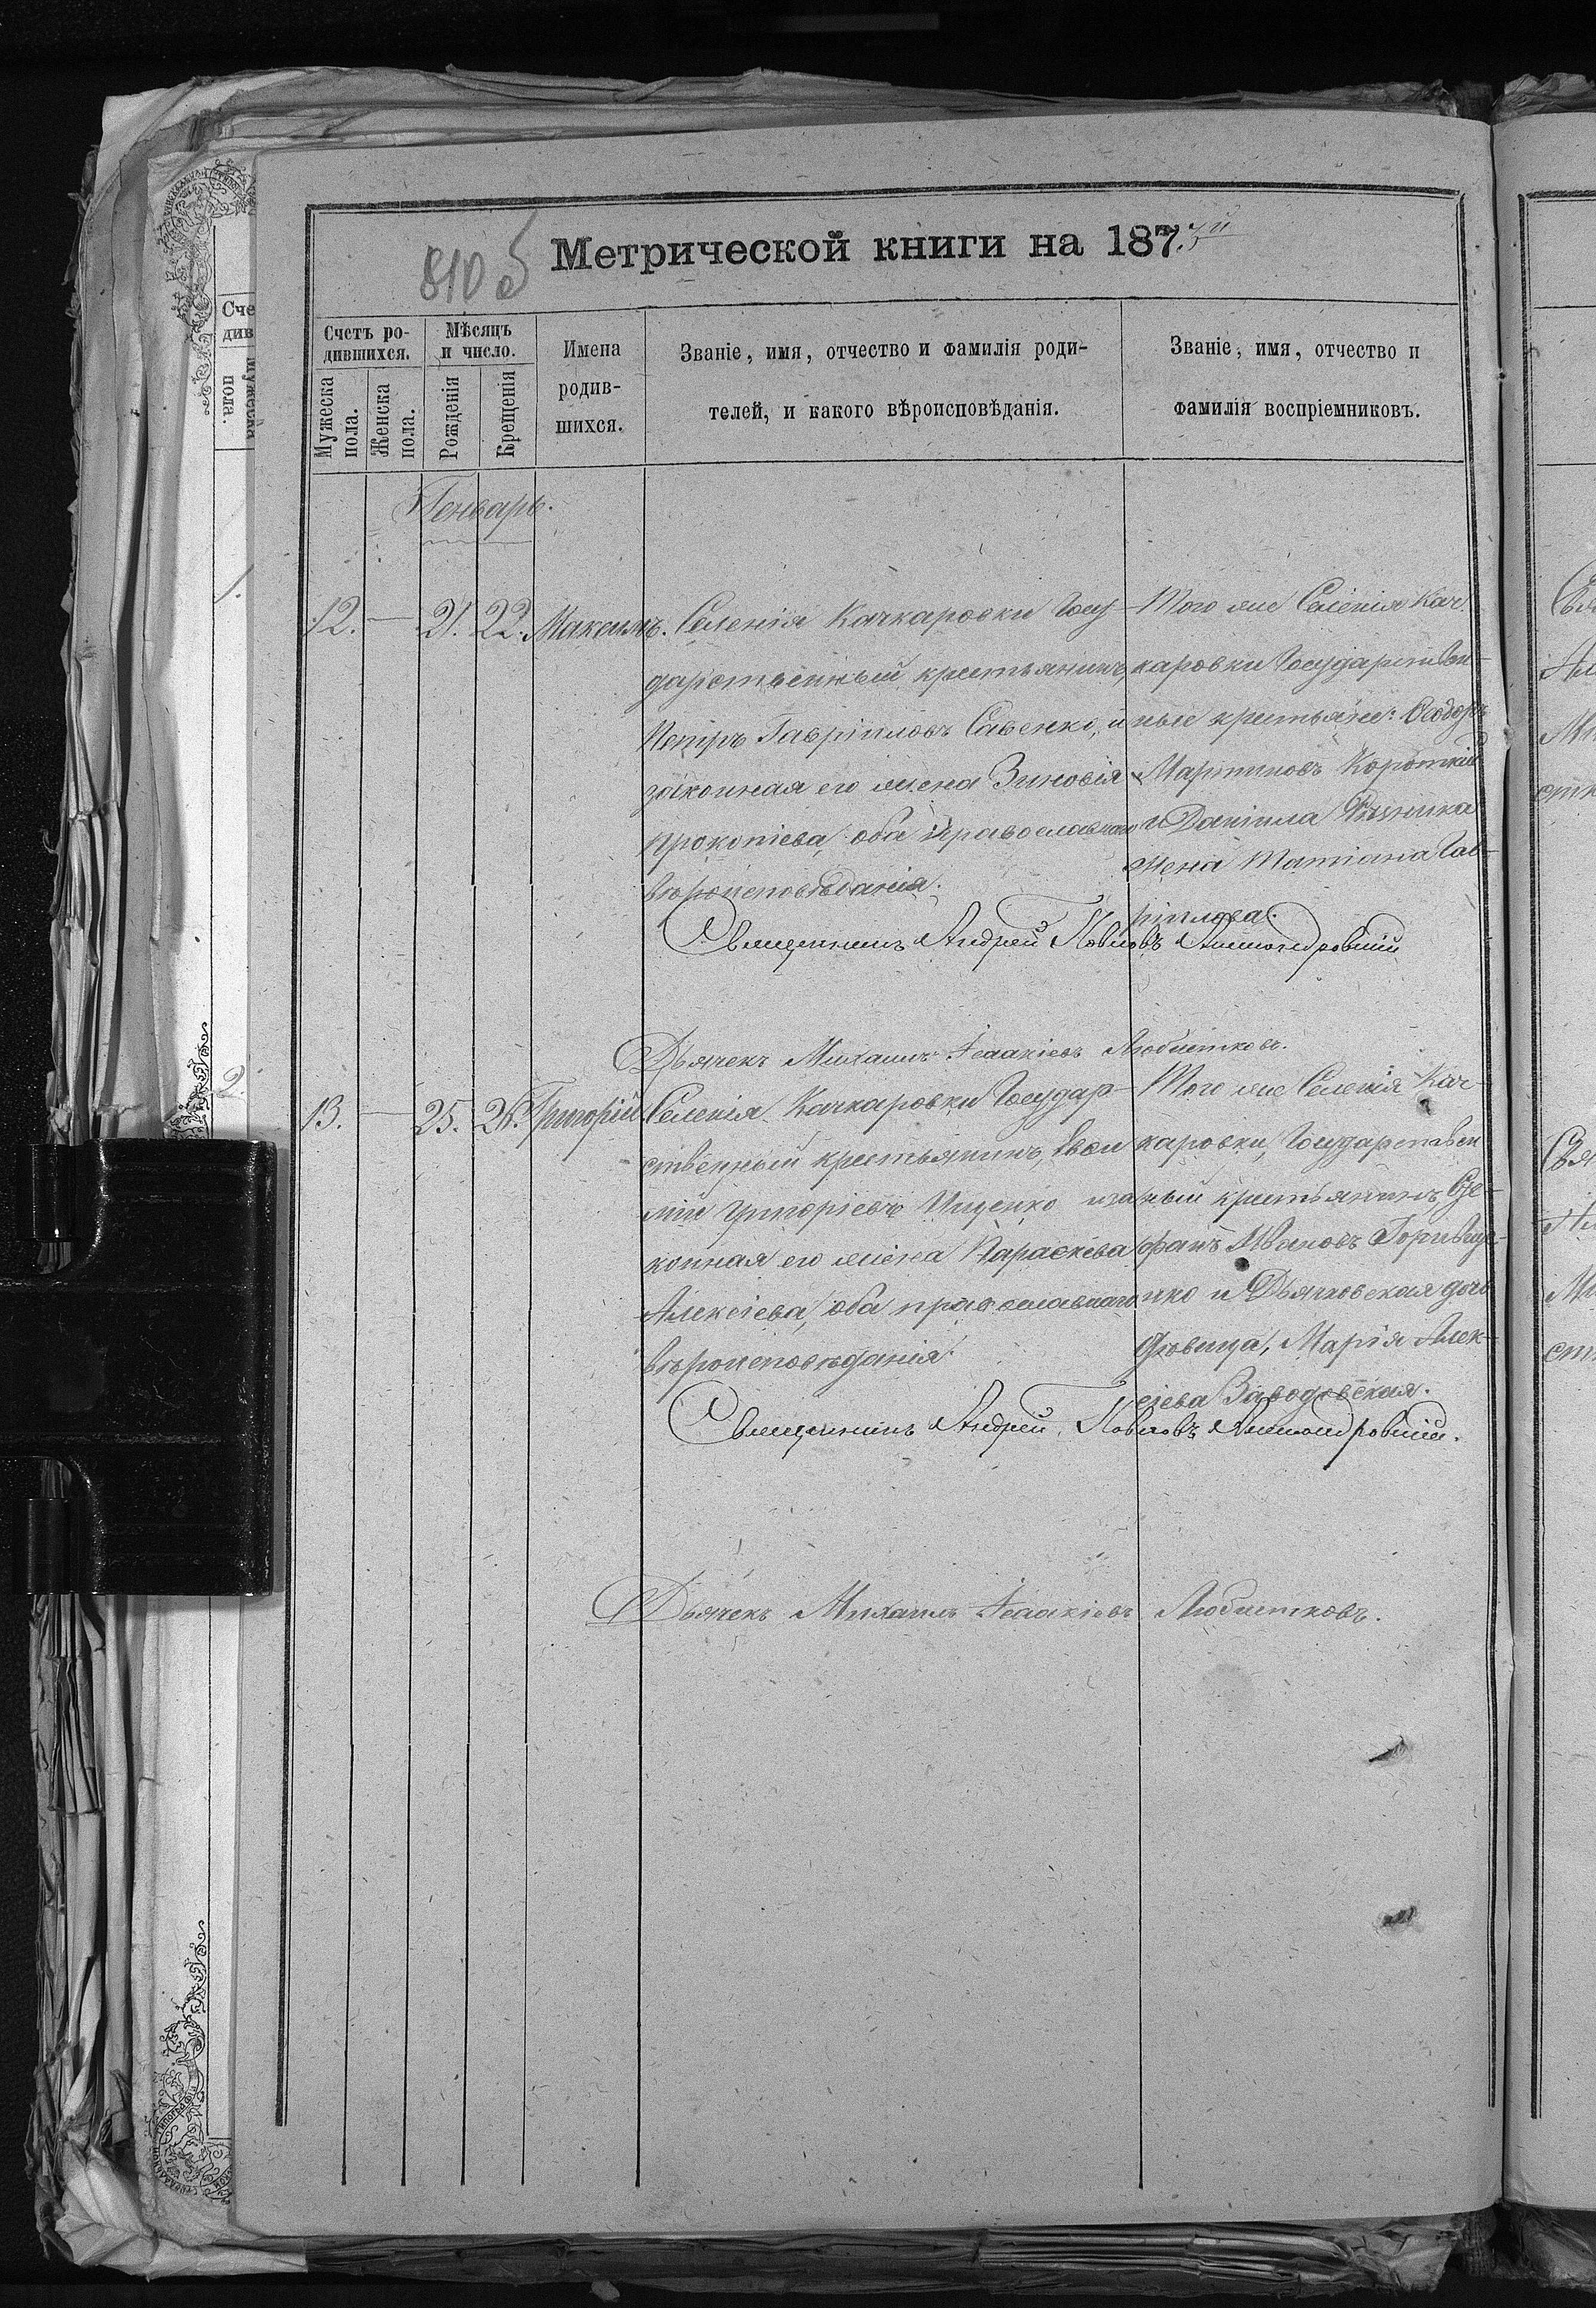 810 б
Метрической книги на 1873й
Счетъ ро-
дившихся.
Мужеска
пола.
Женска
пола.
Мѣсяцъ
и число.
Рожденія
Крещенія
Имена
родив-
шихся.
Званіе, имя, отчество и фамилія роди-
телей, и какого вѣроисповѣданія.
Званіе, имя, отчество и
фамилія воспріемниковъ.
Генварь.
12. — 21. 22. Максимъ.
Селенія Качкаровки Госу-
дарственный крестьянинъ,
Петръ Гавріиловъ Савенко, и
законная его жена Зиновія
Прокопіева, оба православнаго
вѣроисповѣданія.
Того же Селенія Кач-
каровки Государствен-
ные крестьяне: Ѳеодоръ
Мартиновъ Короткій
и Даніила
жена Татіана Гав-
ріилова.
Священникъ Андрей Павловъ
Дьячекъ Михаилъ Ісаакіевъ Любистковъ.
13. — 25. 26. Григорій
Селенія Качкаровки Государ-
ственный крестьянинъ, Евѳи
мій Григоріевъ Ищенко и за
конная его жена Параскева
Алексіева, оба православнаго
вѣроисповѣданія.
Того же Селенія Кач-
каровки, Государствен
ный крестьянинъ Сте-
фанъ Ивановъ
нко и Дьячковская дочь
дѣвица, Марія Алек-
сіева Заводовская.
Священникъ Андрей Павловъ
Дьячекъ Михаилъ Ісаакіевъ Любистковъ.